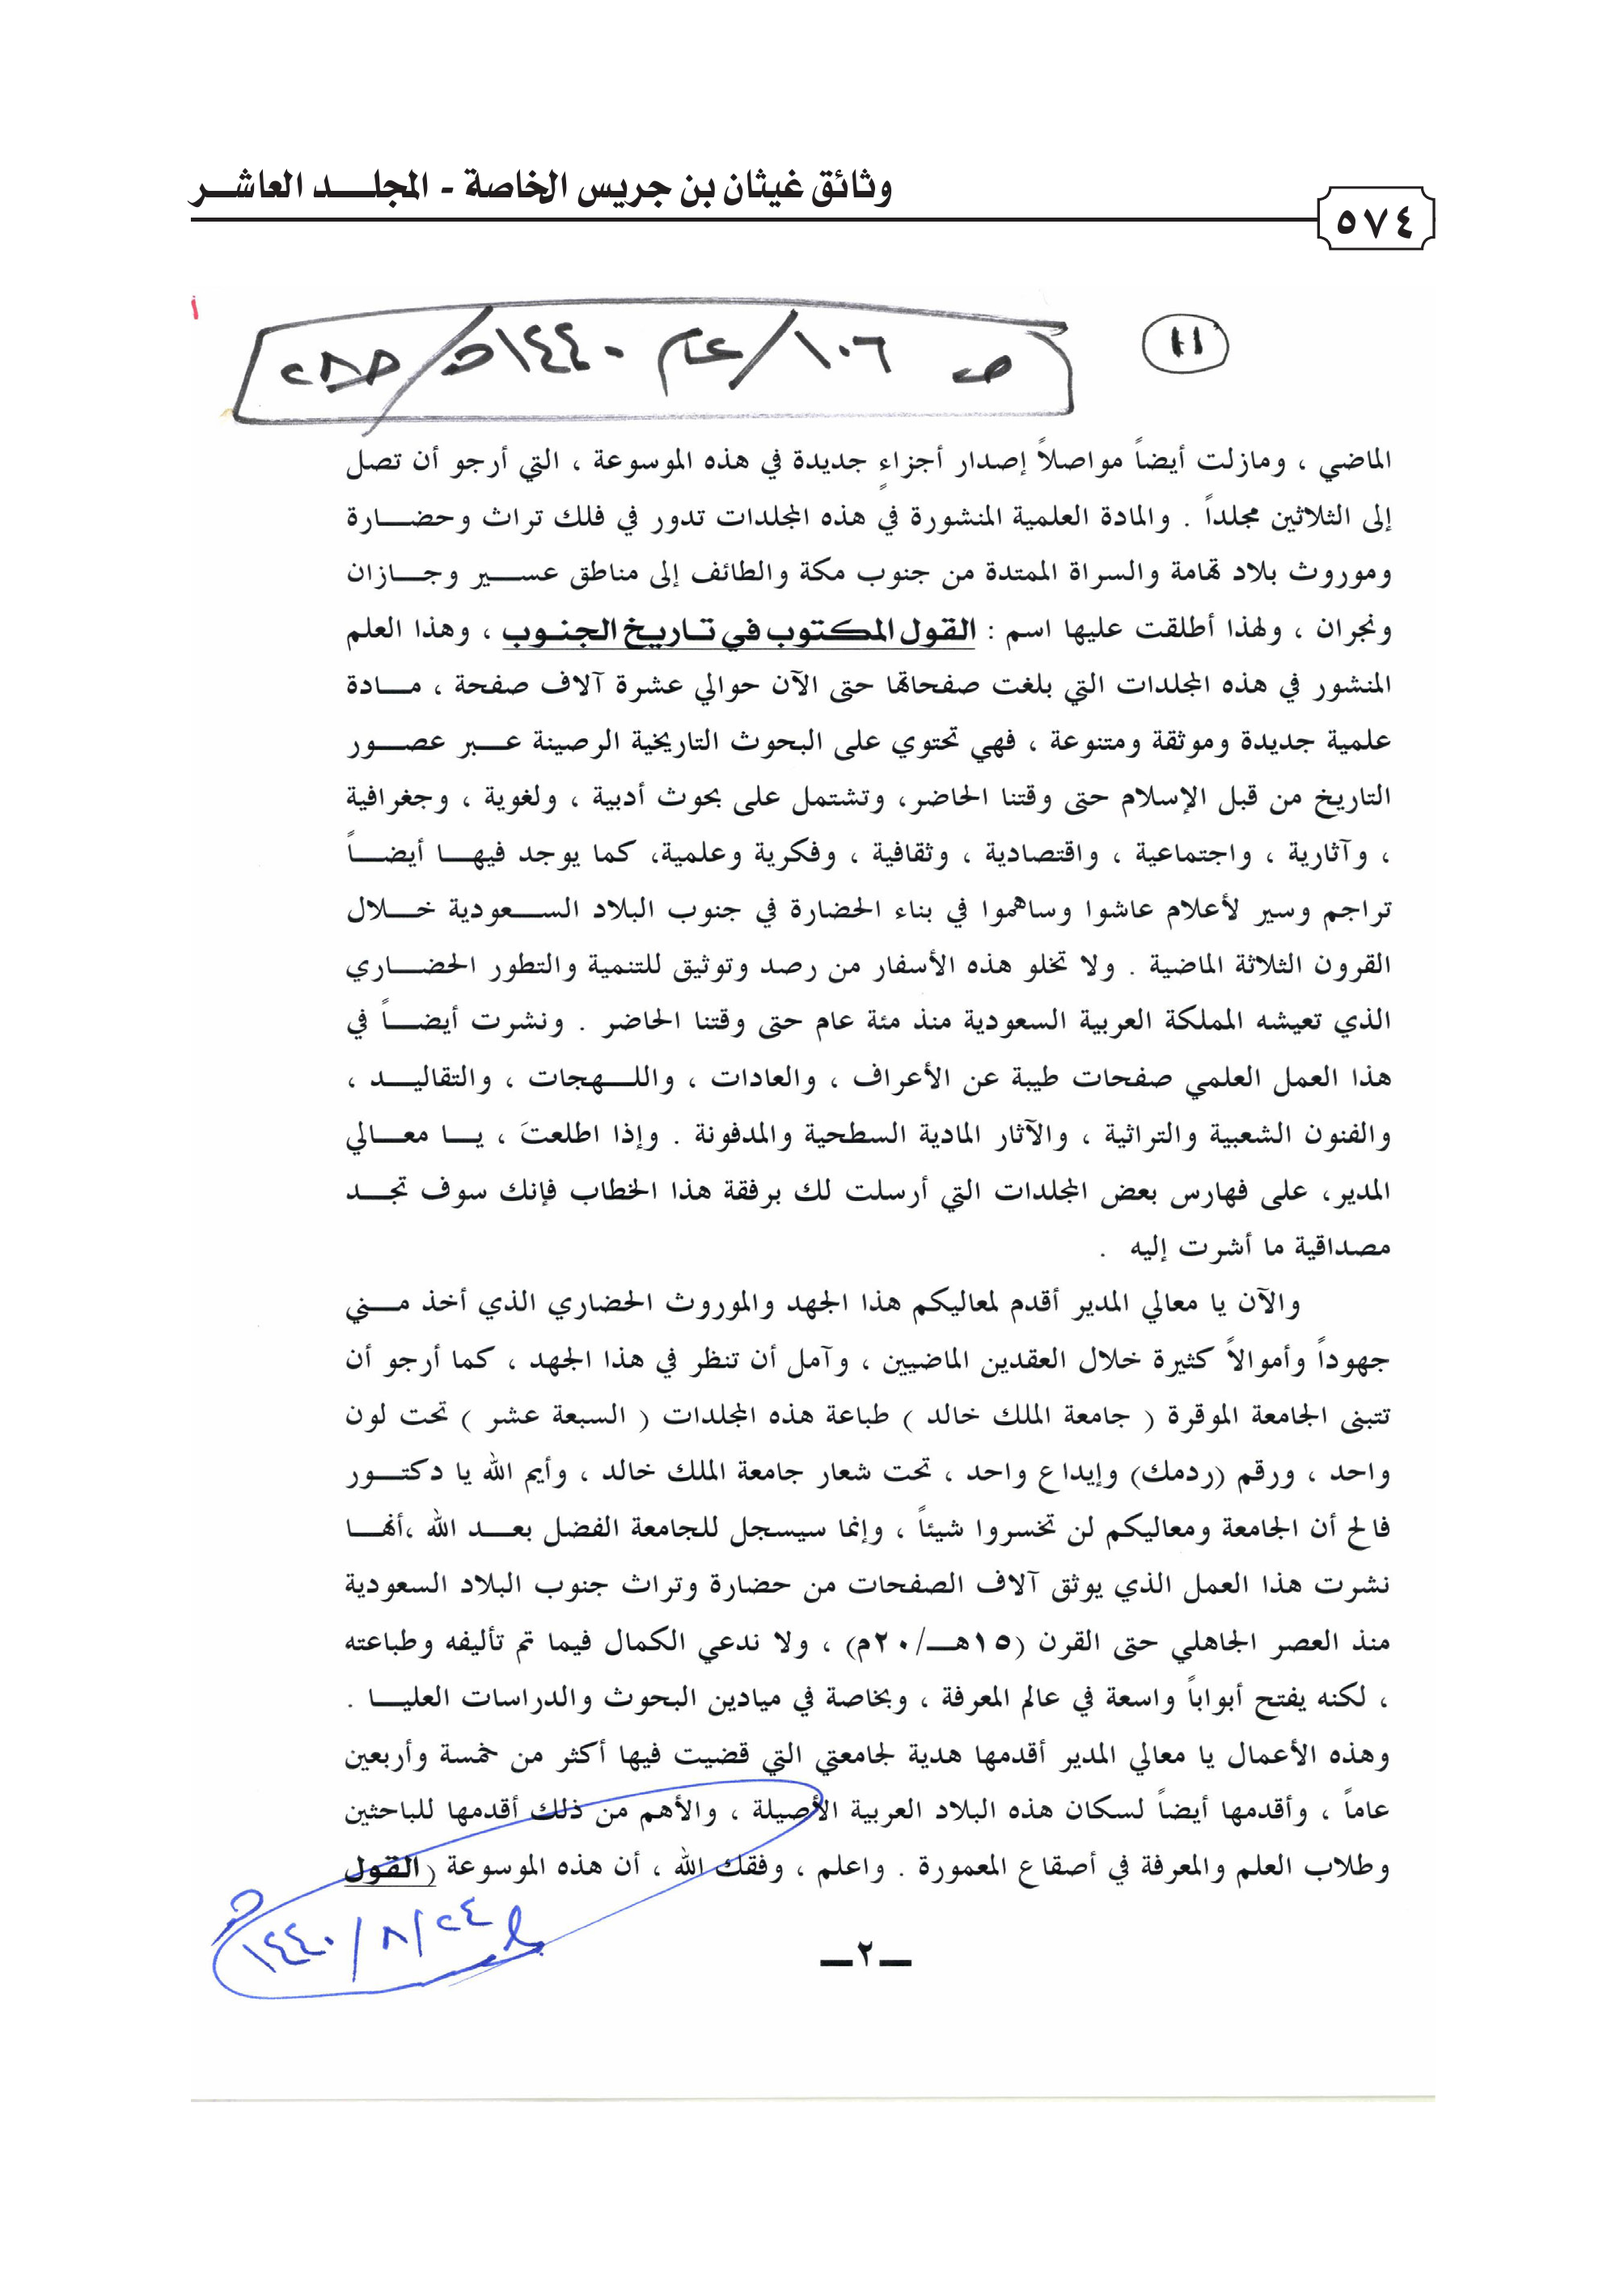 وثائق غيثان بن جريس الخاصة - المجلــــد العاشــر
٥٧٤
١١
ص ١٠٦/ عام ١٤٤٠هـ/
الماضي ، ومازلت أيضاً مواصلاً إصدار أجزاءٍ جديدة في هذه الموسوعة ، التي أرجو أن تصل
إلى الثلاثين مجلداً . والمادة العلمية المنشورة في هذه المجلدات تدور في فلك تراث وحضــــارة
وموروث بلاد تهامة والسراة الممتدة من جنوب مكة والطائف إلى مناطق عســـير وجـــازان
ونجران ، ولهذا أطلقت عليها اسم : القول المكتوب في تاريخ الجنوب ، وهذا العلم
المنشور في هذه المجلدات التي بلغت صفحاتها حتى الآن حوالي عشرة آلاف صفحة ، مـــادة
علمية جديدة وموثقة ومتنوعة ، فهي تحتوي على البحوث التاريخية الرصينة عـــبر عصـــور
التاريخ من قبل الإسلام حتى وقتنا الحاضر، وتشتمل على بحوث أدبية ، ولغوية ، وجغرافية
، وآثارية ، واجتماعية ، واقتصادية ، وثقافية ، وفكرية وعلمية، كما يوجد فيهـــا أيضـــاً
تراجم وسير لأعلام عاشوا وساهموا في بناء الحضارة في جنوب البلاد الســـعودية خـــلال
القرون الثلاثة الماضية . ولا تخلو هذه الأسفار من رصد وتوثيق للتنمية والتطور الحضـــاري
الذي تعيشه المملكة العربية السعودية منذ مئة عام حتى وقتنا الحاضر . ونشرت أيضـــاً في
هذا العمل العلمي صفحات طيبة عن الأعراف ، والعادات ، واللـــهجات ، والتقاليـــد ،
والفنون الشعبية والتراثية ، والآثار المادية السطحية والمدفونة . وإذا اطلعتَ ، يـــا معـــالي
المدير، على فهارس بعض المجلدات التي أرسلت لك برفقة هذا الخطاب فإنك سوف تجـــد
مصداقية ما أشرت إليه .
والآن يا معالي المدير أقدم لمعاليكم هذا الجهد والموروث الحضاري الذي أخذ مـــني
جهوداً وأموالاً كثيرة خلال العقدين الماضيين ، وآمل أن تنظر في هذا الجهد ، كما أرجو أن
تتبنى الجامعة الموقرة ( جامعة الملك خالد ) طباعة هذه المجلدات ( السبعة عشر ) تحت لون
واحد ، ورقم (ردمك) وإيداع واحد ، تحت شعار جامعة الملك خالد ، وأيم الله يا دكتـــور
فالح أن الجامعة ومعاليكم لن تخسروا شيئاً ، وإنما سيسجل للجامعة الفضل بعـــد الله ،أنهـــا
نشرت هذا العمل الذي يوثق آلاف الصفحات من حضارة وتراث جنوب البلاد السعودية
منذ العصر الجاهلي حتى القرن (١٥هـــ/٢٠م) ، ولا ندعي الكمال فيما تم تأليفه وطباعته
، لكنه يفتح أبواباً واسعة في عالم المعرفة ، وبخاصة في ميادين البحوث والدراسات العليـــا .
وهذه الأعمال يا معالي المدير أقدمها هدية لجامعتي التي قضيت فيها أكثر من خمسة وأربعين
عاماً ، وأقدمها أيضاً لسكان هذه البلاد العربية الأصيلة ، والأهم من ذلك أقدمها للباحثين
وطلاب العلم والمعرفة في أصقاع المعمورة . واعلم ، وفقك الله ، أن هذه الموسوعة (القول
٢٤/٨/١٤٤٠هـ
ــ٢ــ